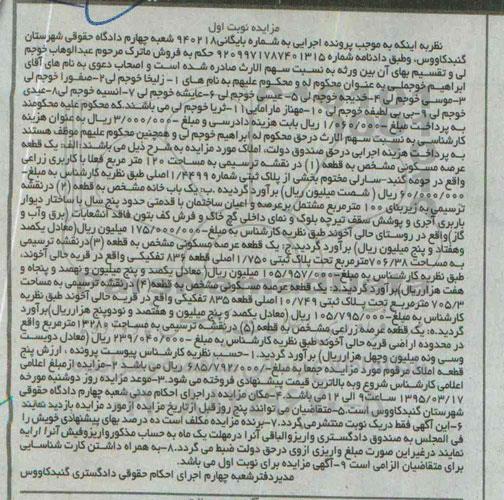 مزایده نوبت اول
نظربه اینکه به موجب پرونده اجرایی به شماره بایگانی۹۴۰۲۱۸ شعبه چهارم دادگاه حقوقی شهرستان
گنبدکاووس، وطبق دادنامه شماره ۹۲۰۹۹۷۱۷۸۷۴۰۱۳۱۵ حکم به فروش ماترک مرحوم عبدالوهاب خوجم
لی و تقسیم بهای آن بین ورثه به نسبت سهم الارث صادره شده است و اصحاب دعوی به نام های آقای
ابراهیم خوجملی به عنوان محکوم له و محکوم علیهم به نام های ۱- زلیخا خوجم لی۲-صفورا خوجم لی
۳-موسی خوجم لی ۴-خدیجه خوجم لی ۵- عیسی خوجم لی ۶-عایشه خوجم لی ۷-انسیه خوجم لی۸-عیدی
خوجم لی ۹-بی بی لطیفه خوجم لی ۱۰-مهناز مارامایی۱۱-ثریا خوجم لی می باشند.که محکوم علیه محکومند
به پرداخت مبلغ ۱/۰۶۰/۰۰۰ ریال بابت هزینه دادرسی و مبلغ ۳/۰۰۰/۰۰۰ ریال به عنوان هزینه
کارشناسی به نسبت سهم الارث درحق محکوم له ابراهیم خوجم لی و همچنین محکوم علیهم موظف هستند
به پرداخت هزینه اجرایی درحق صندوق دولت، املاک مورد مزایده به شرح ذیل می باشند: الف: یک قطعه
عرصه مسکونی مشخص به قطعه (۱) در نقشه ترسیمی به مساحت ۱۲۰ متر مربع فعلا با کاربری زراعی
واقع در حومه گنبد-سارلی مختوم بخشی از پلاک ثبتی شماره ۱/۴۴۹۹ اصلی طبق نظریه کارشناس به مبلغ-
۶۰/۰۰۰/۰۰۰ ریال (شصت میلیون/ ریال) برآورد گردیدی .ب: یک باب خانه مشخص به قطعه (۲) درنقشه
ترسیمی به زیربنای ۱۰۰ مترمربع مشتمل برعرصه و اعیان ساختمان با قدمتی حدود پنج سال با ساختار دیوار
باربری آجری و پوشش سقف تیرچه بلوک و نمای داخلی گچ خاک و فرش کف بتون فاقد انشعابات (برق وآب و
گاز)واقع در روستای حالی آخوند طبق نظریه کارشناس به مبلغ-/۱۷۵/۰۰۰/۰۰۰ ریال(معادل یکصد
وهفتاد و پنج میلیون ریال) برآورد گردید.ج: یک قطعه عرصه مسکونی مشخص به قطعه (۳)درنقشه ترسیمی
به مساحت۷۰۶/۳۸مترمربع تحت پلاک ثبتی ۱/۷۵۰ اصلی قطعه ۸۳۶ تفکیکی واقع در قریه حالی آخوند،
طبق نظریه کارشناس به مبلغ-/۱۰۵/۹۵۷/۰۰۰ میلیون ریال( معادل یکصد و پنج میلیون و نهصد و پنجاه و
هفت هزارریال)برآورد گردید.د: یک قطعه عرصه مسکونی مشخص به قطعه (۴) درنقشه ترسیمی به مساحت
۷۰۵/۳ مترمربع تحت پلاک ثبتی ۱۰/۷۴۹ اصلی قطعه ۸۳۵ تفکیکی واقع در قریه حالی آخوند طبق نظریه
کارشناس به مبلغ-/۱۰۵/۷۹۵/۰۰۰ ریال (معادل یکصد و پنج میلیون و هفتصد و نودوپنج هزارریال)برآورد
گردید.ه: یک قطعه عرصه زراعی مشخص به قطعه (۵) درنقشه ترسیمی به مساحت ۱۳۲۸۰مترمربع واقع
در محدوده اراضی قریه حالی آخوند طبق نظریه کارشناس به مبلغ -/۲۳۹/۰۴۰/۰۰۰ ریال (معادل دویست
وسی ونه میلیون وچهل هزارریال) برآورد گردید.۱-حسب نظریه کارشناس پیوست پرونده ، ارزش پنج
قطعه املاک مرقوم مورد مزایده جمعا به مبلغ-/۶۸۵/۷۹۲/۰۰۰ ریال می باشد ۲-مزایده ازمبلغ اعلامی
اعلامی کارشناس شروع وبه بالاترین قیمت پیشنهادی فروخته می شود.۳-موعد مزایده روز دوشنبه مورخه
۱۳۹۵/۰۳/۱۷ ساعت۹ الی ۱۲می باشد.۴-مکان مزایده دراجرای احکام مدنی شعبه چهارم دادگاه حقوقی
شهرستان گنبدکاووس است.۵-متقاضیان می توانند پنج روز قبل ازتاریخ مزایده ازمورد مزایده بازدید نمایند
۶-این آگهی فقط دریک نوبت منتشرمی گردد.۷-برنده مزایده مکلف است ده درصد بهای پیشنهادی خویش را
فی المجلس به صندوق دادگستری واریزوالباقی آنرا درمهلت یک ماه به حساب مذکورواریزوفیش آنرا ارایه
نمایند درغیراین صورت مبلغ واریزی ازوی درحق دولت ضبط می گردد.۸-به همراه داشتن کارت شناسایی
برای متقاضیان الزامی است ۹-آگهی مزایده برای نوبت اول می باشد.
مدیردفترشعبه چهارم اجرای احکام حقوقی دادگستری گنبدکاووس